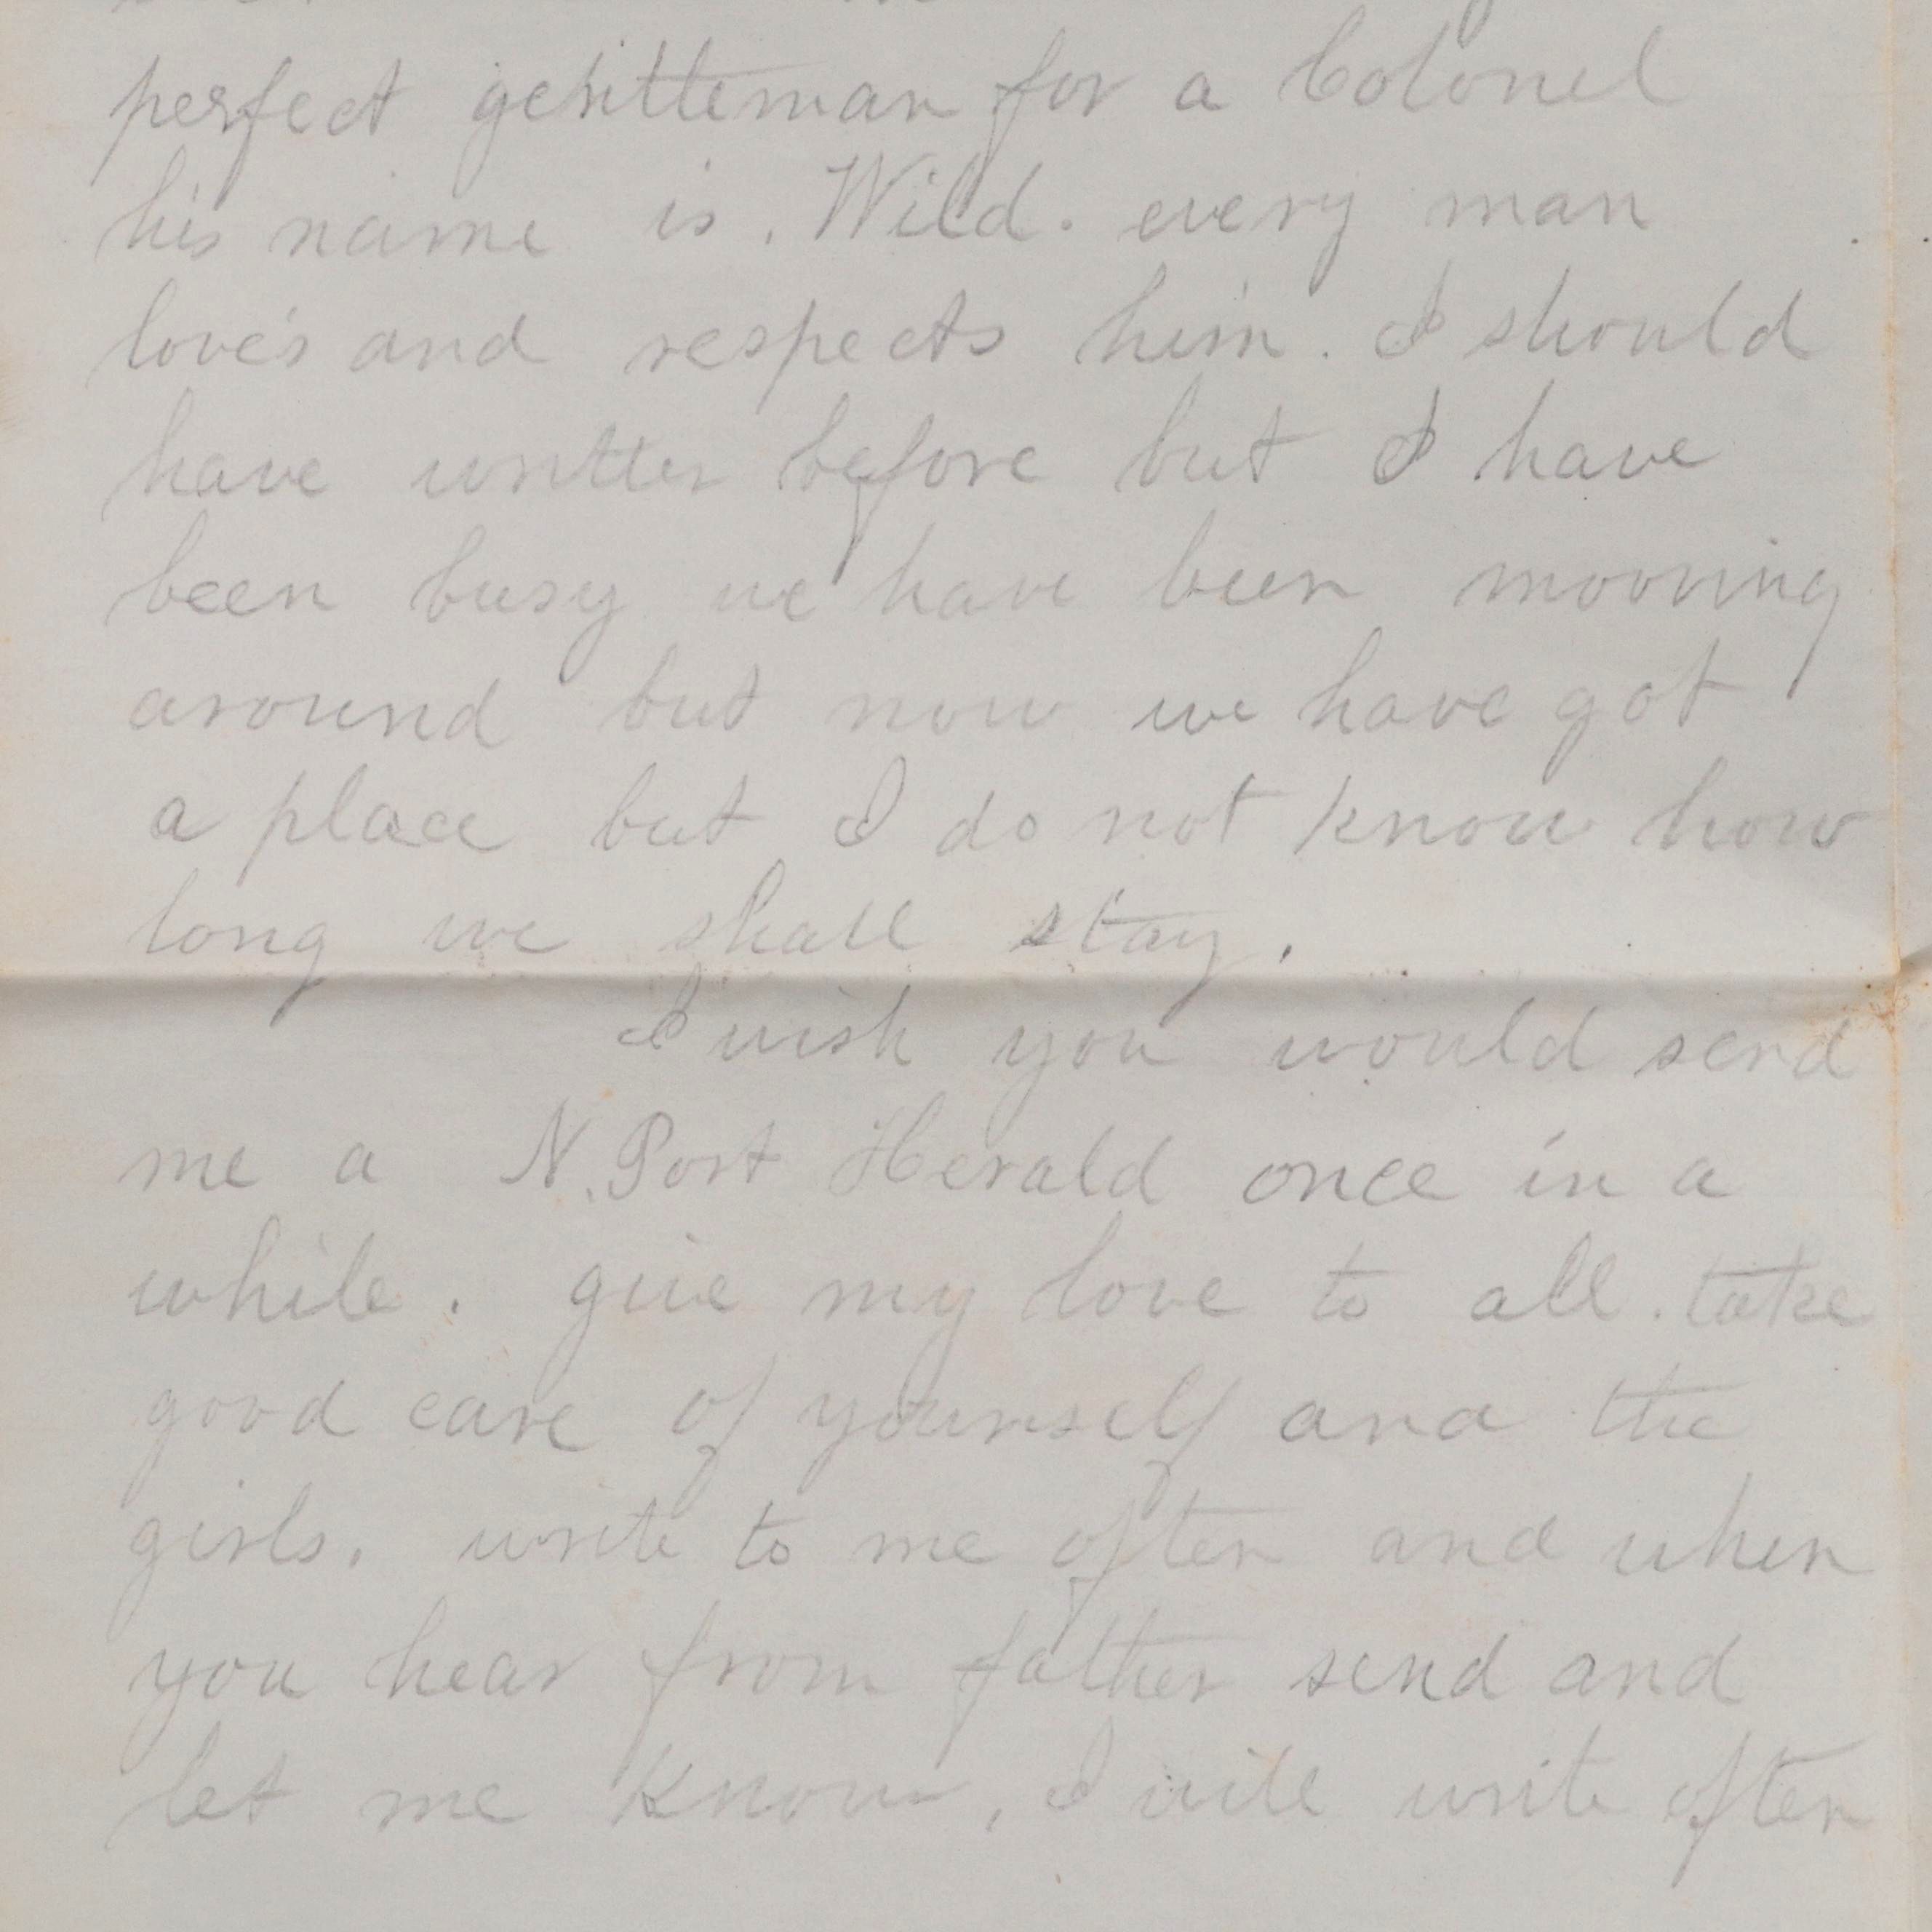 perfect gentleman for a Colonel
his name is. Wild. every man
love's and respects him. I should
have written before but I have
been busy we have been mooving
around but now we have got
a place but I do not know how
long we shall stay.
I wish you would send
me a N. Port Herald once in a
while. give my love to all. take
good care of yourself and the
girls. write to me often and when
you hear from father send and
let me know, I will write often